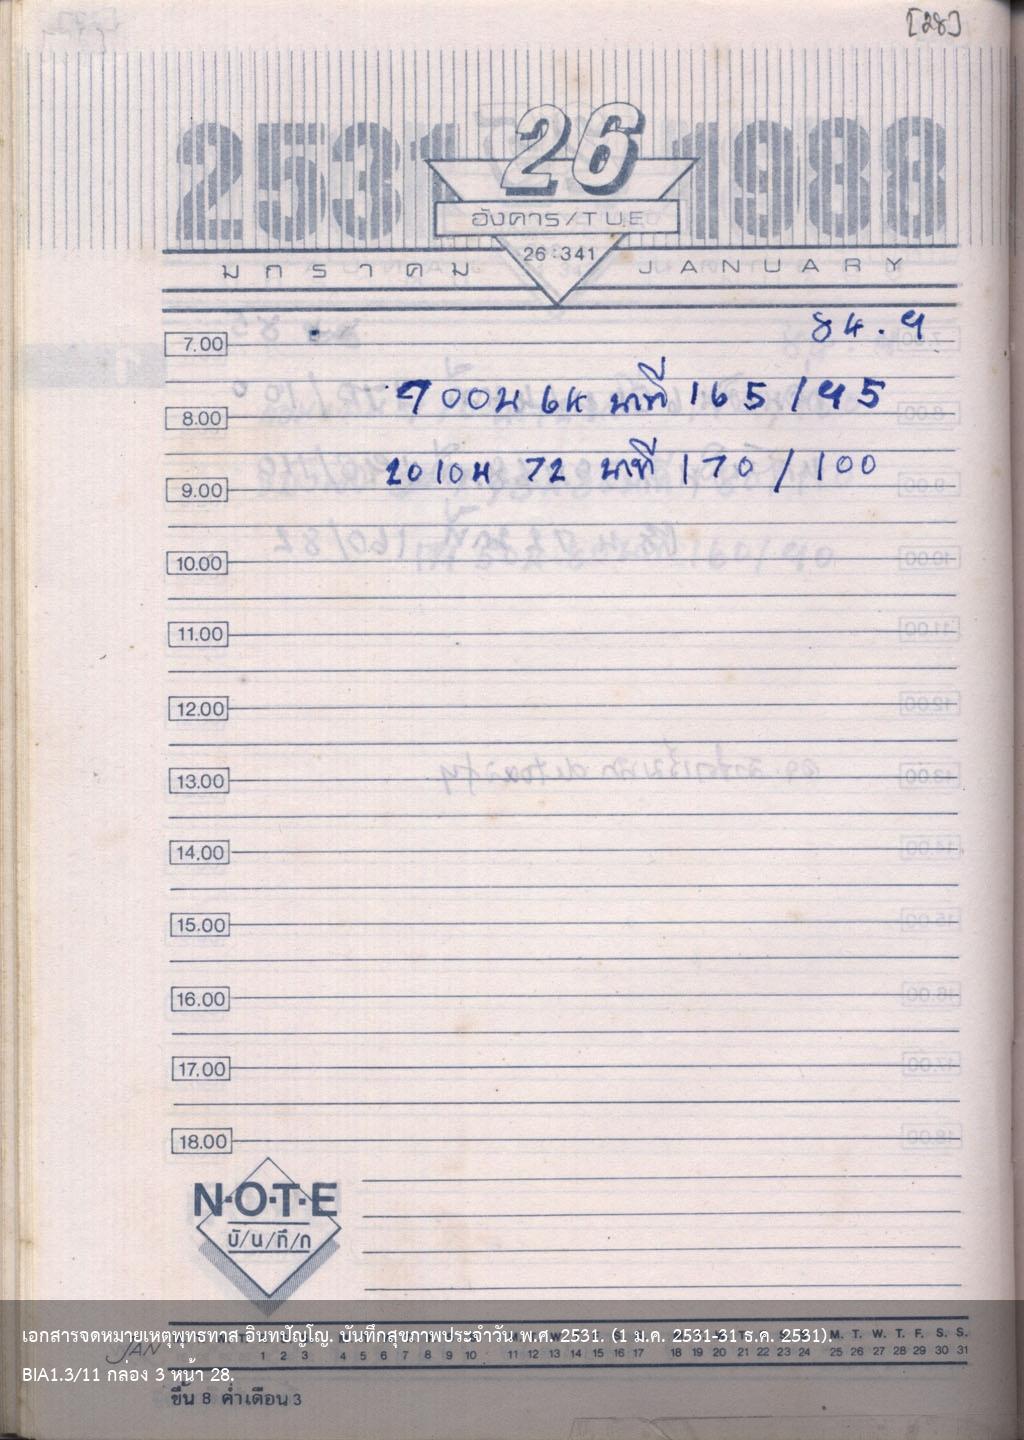 [28]
2531 26 1988
อังคาร/TUE
26:341
มกราคม JANUARY
84.9
7.00
700น 64 นาที 165/95
8.00
2010น 72 นาที 170/100
9.00
10.00
11.00
12.00
13.00
14.00
15.00
16.00
17.00
18.00
N·O·T·E
บั/น/ทึ/ก
เอกสารจดหมายเหตุพุทธทาส อินทปัญโญ. บันทึกสุขภาพประจำวัน พ.ศ. 2531. (1 ม.ค. 2531-31 ธ.ค. 2531).
M. T. W. T. F. S. S.
JAN 1 2 3 4 5 6 7 8 9 10 11 12 13 14 15 16 17 18 19 20 21 22 23 24 25 26 27 28 29 30 31
BIA1.3/11 กล่อง 3 หน้า 28.
ขึ้น 8 ค่ำ เดือน 3